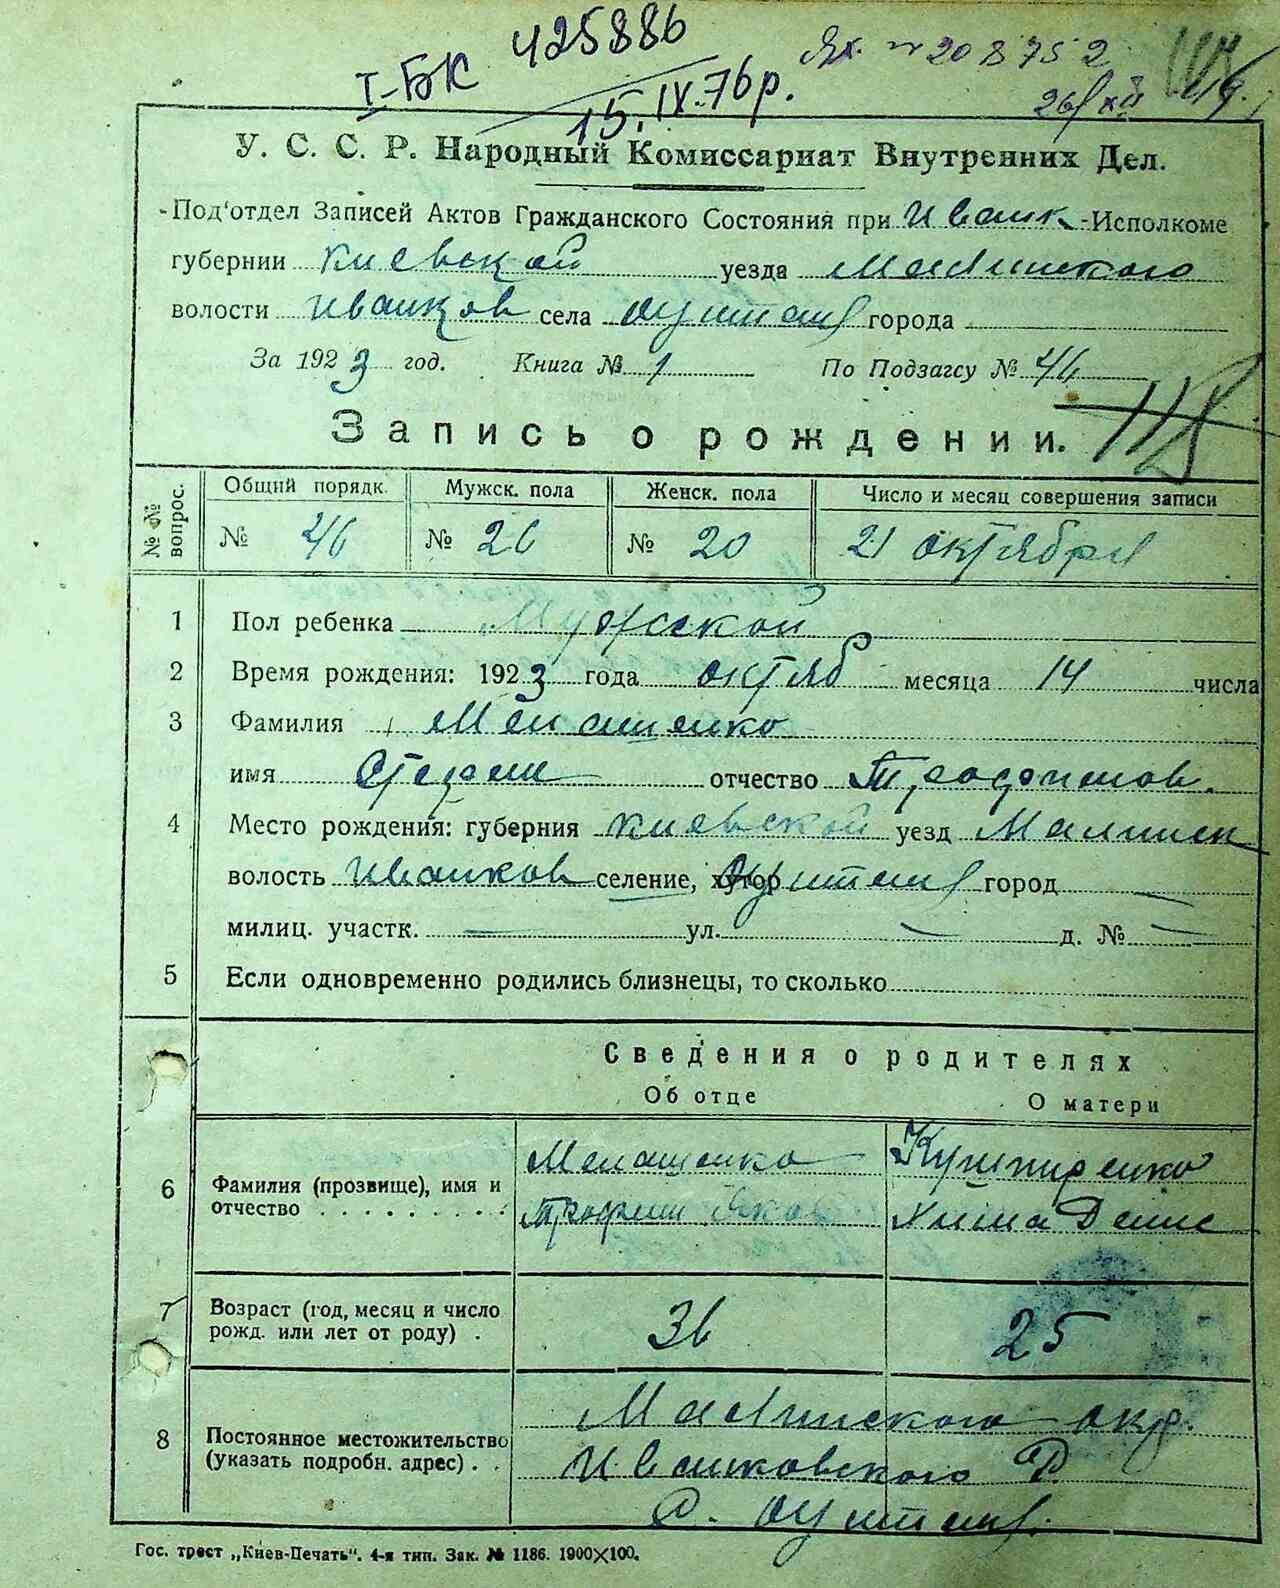 I-БК 425886
15.IX.76р.
№ 208752
У. С. С. Р. Народный Комиссариат Внутренних Дел.
Под'отдел Записей Актов Гражданского Состояния при Иванк-Исполкоме
губернии Киевской уезда Малинского
волости Иванков села города
За 1923 год. Книга № 1 По Подзагсу № 46
118
Запись о рождении.
№№ вопрос. Общий порядк. Мужск. пола Женск. пола Число и месяц совершения записи
№ 46 № 26 № 20 21 октября
1 Пол ребенка Мужской
2 Время рождения: 1923 года октяб месяца 14 числа
3 Фамилия Мелашенко
имя Стефан отчество Трофимов.
4 Место рождения: губерния Киевской уезд Малинск
волость Иванков селение, хутор город
милиц. участк. — ул. — д. № —
5 Если одновременно родились близнецы, то сколько
Сведения о родителях
Об отце О матери
6 Фамилия (прозвище), имя и Мелашенко
отчество . . . . . . . . . Трофим Яков Денис
7 Возраст (год, месяц и число
рожд. или лет от роду) . 36 25
Малинского окр.
8 Постоянное местожительство
(указать подробн. адрес) . . Иванковского Р.
с.
Гос. трест „Киев-Печать“. 4-я тип. Зак. № 1186. 1900×100.